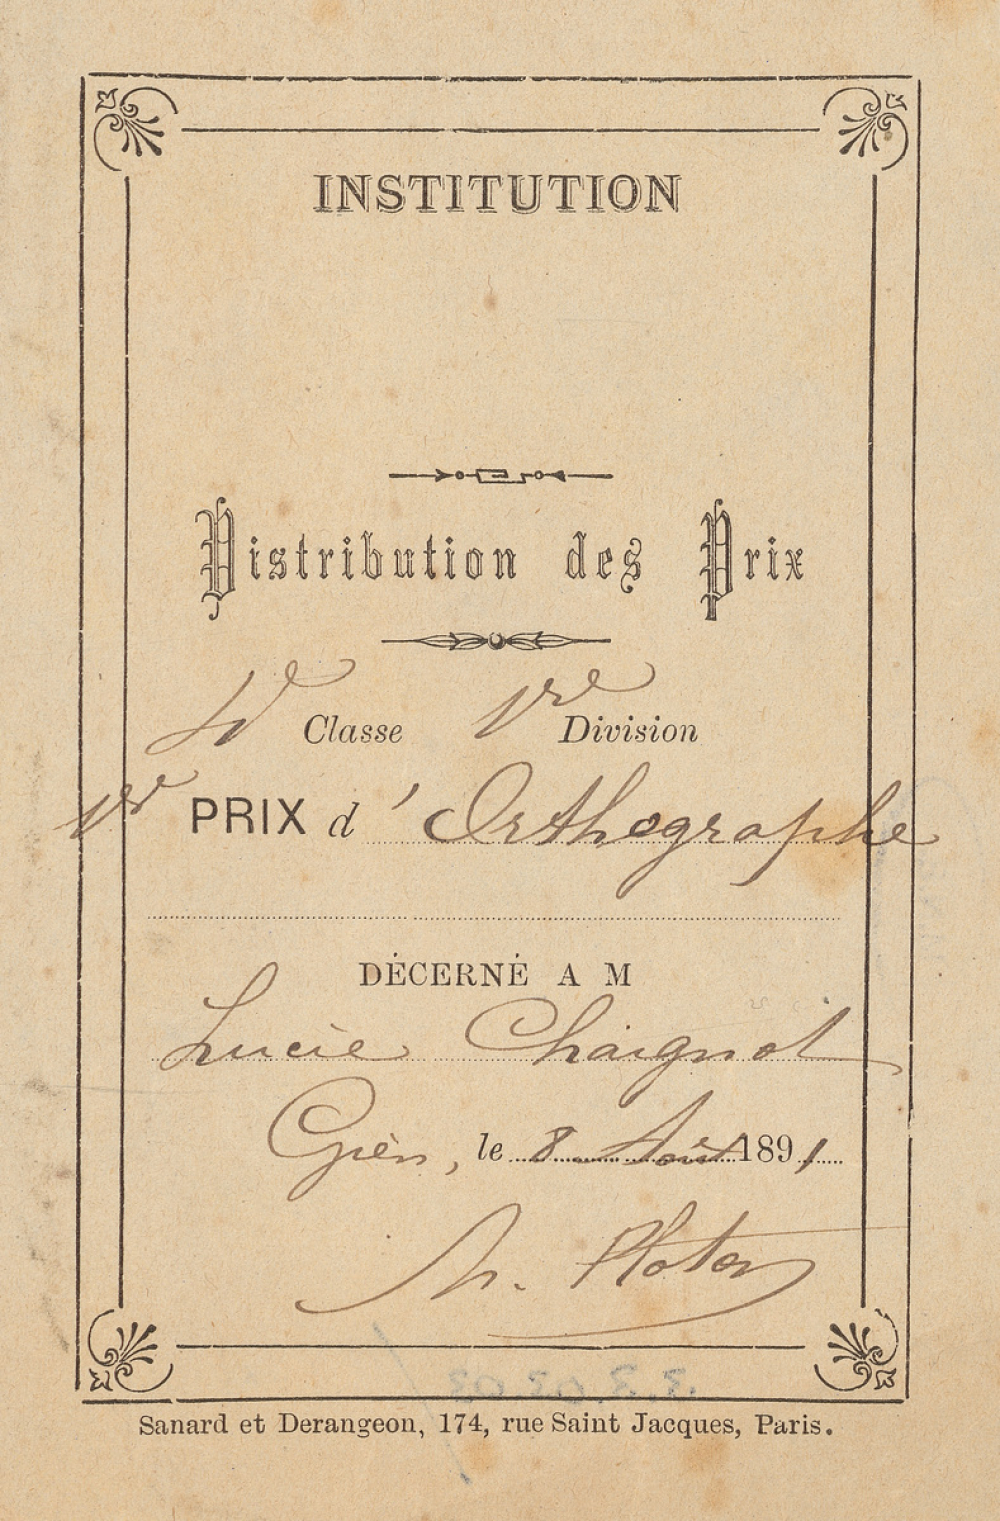 INSTITUTION
Distribution des Prix
Classe 1re Division
1er PRIX d'Orthographe
DÉCERNÉ A M
Lucie Chaignot
Gien, le 8 Août 1891
Sanard et Derangeon, 174, rue Saint Jacques, Paris.